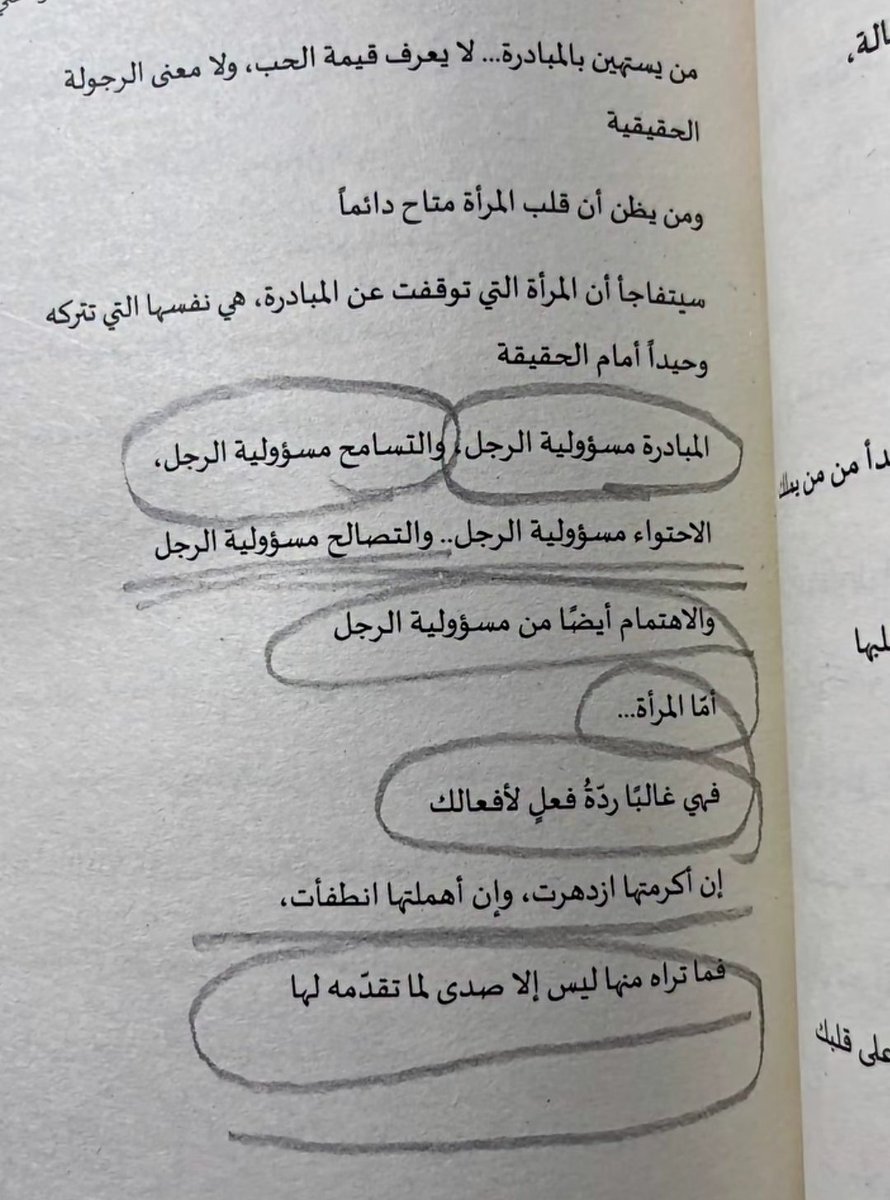 من يستهين بالمبادرة... لا يعرف قيمة الحب، ولا معنى الرجولة
الحقيقية
ومن يظن أن قلب المرأة متاح دائماً
سيتفاجأ أن المرأة التي توقفت عن المبادرة، هي نفسها التي تتركه
وحيداً أمام الحقيقة
المبادرة مسؤولية الرجل، والتسامح مسؤولية الرجل،
الاحتواء مسؤولية الرجل.. والتصالح مسؤولية الرجل
والاهتمام أيضًا من مسؤولية الرجل
أمّا المرأة...
فهي غالبًا ردّةُ فعلٍ لأفعالك
إن أكرمتها ازدهرت، وإن أهملتها انطفأت،
فما تراه منها ليس إلا صدى لما تقدّمه لها
من من يملك
على قلبك